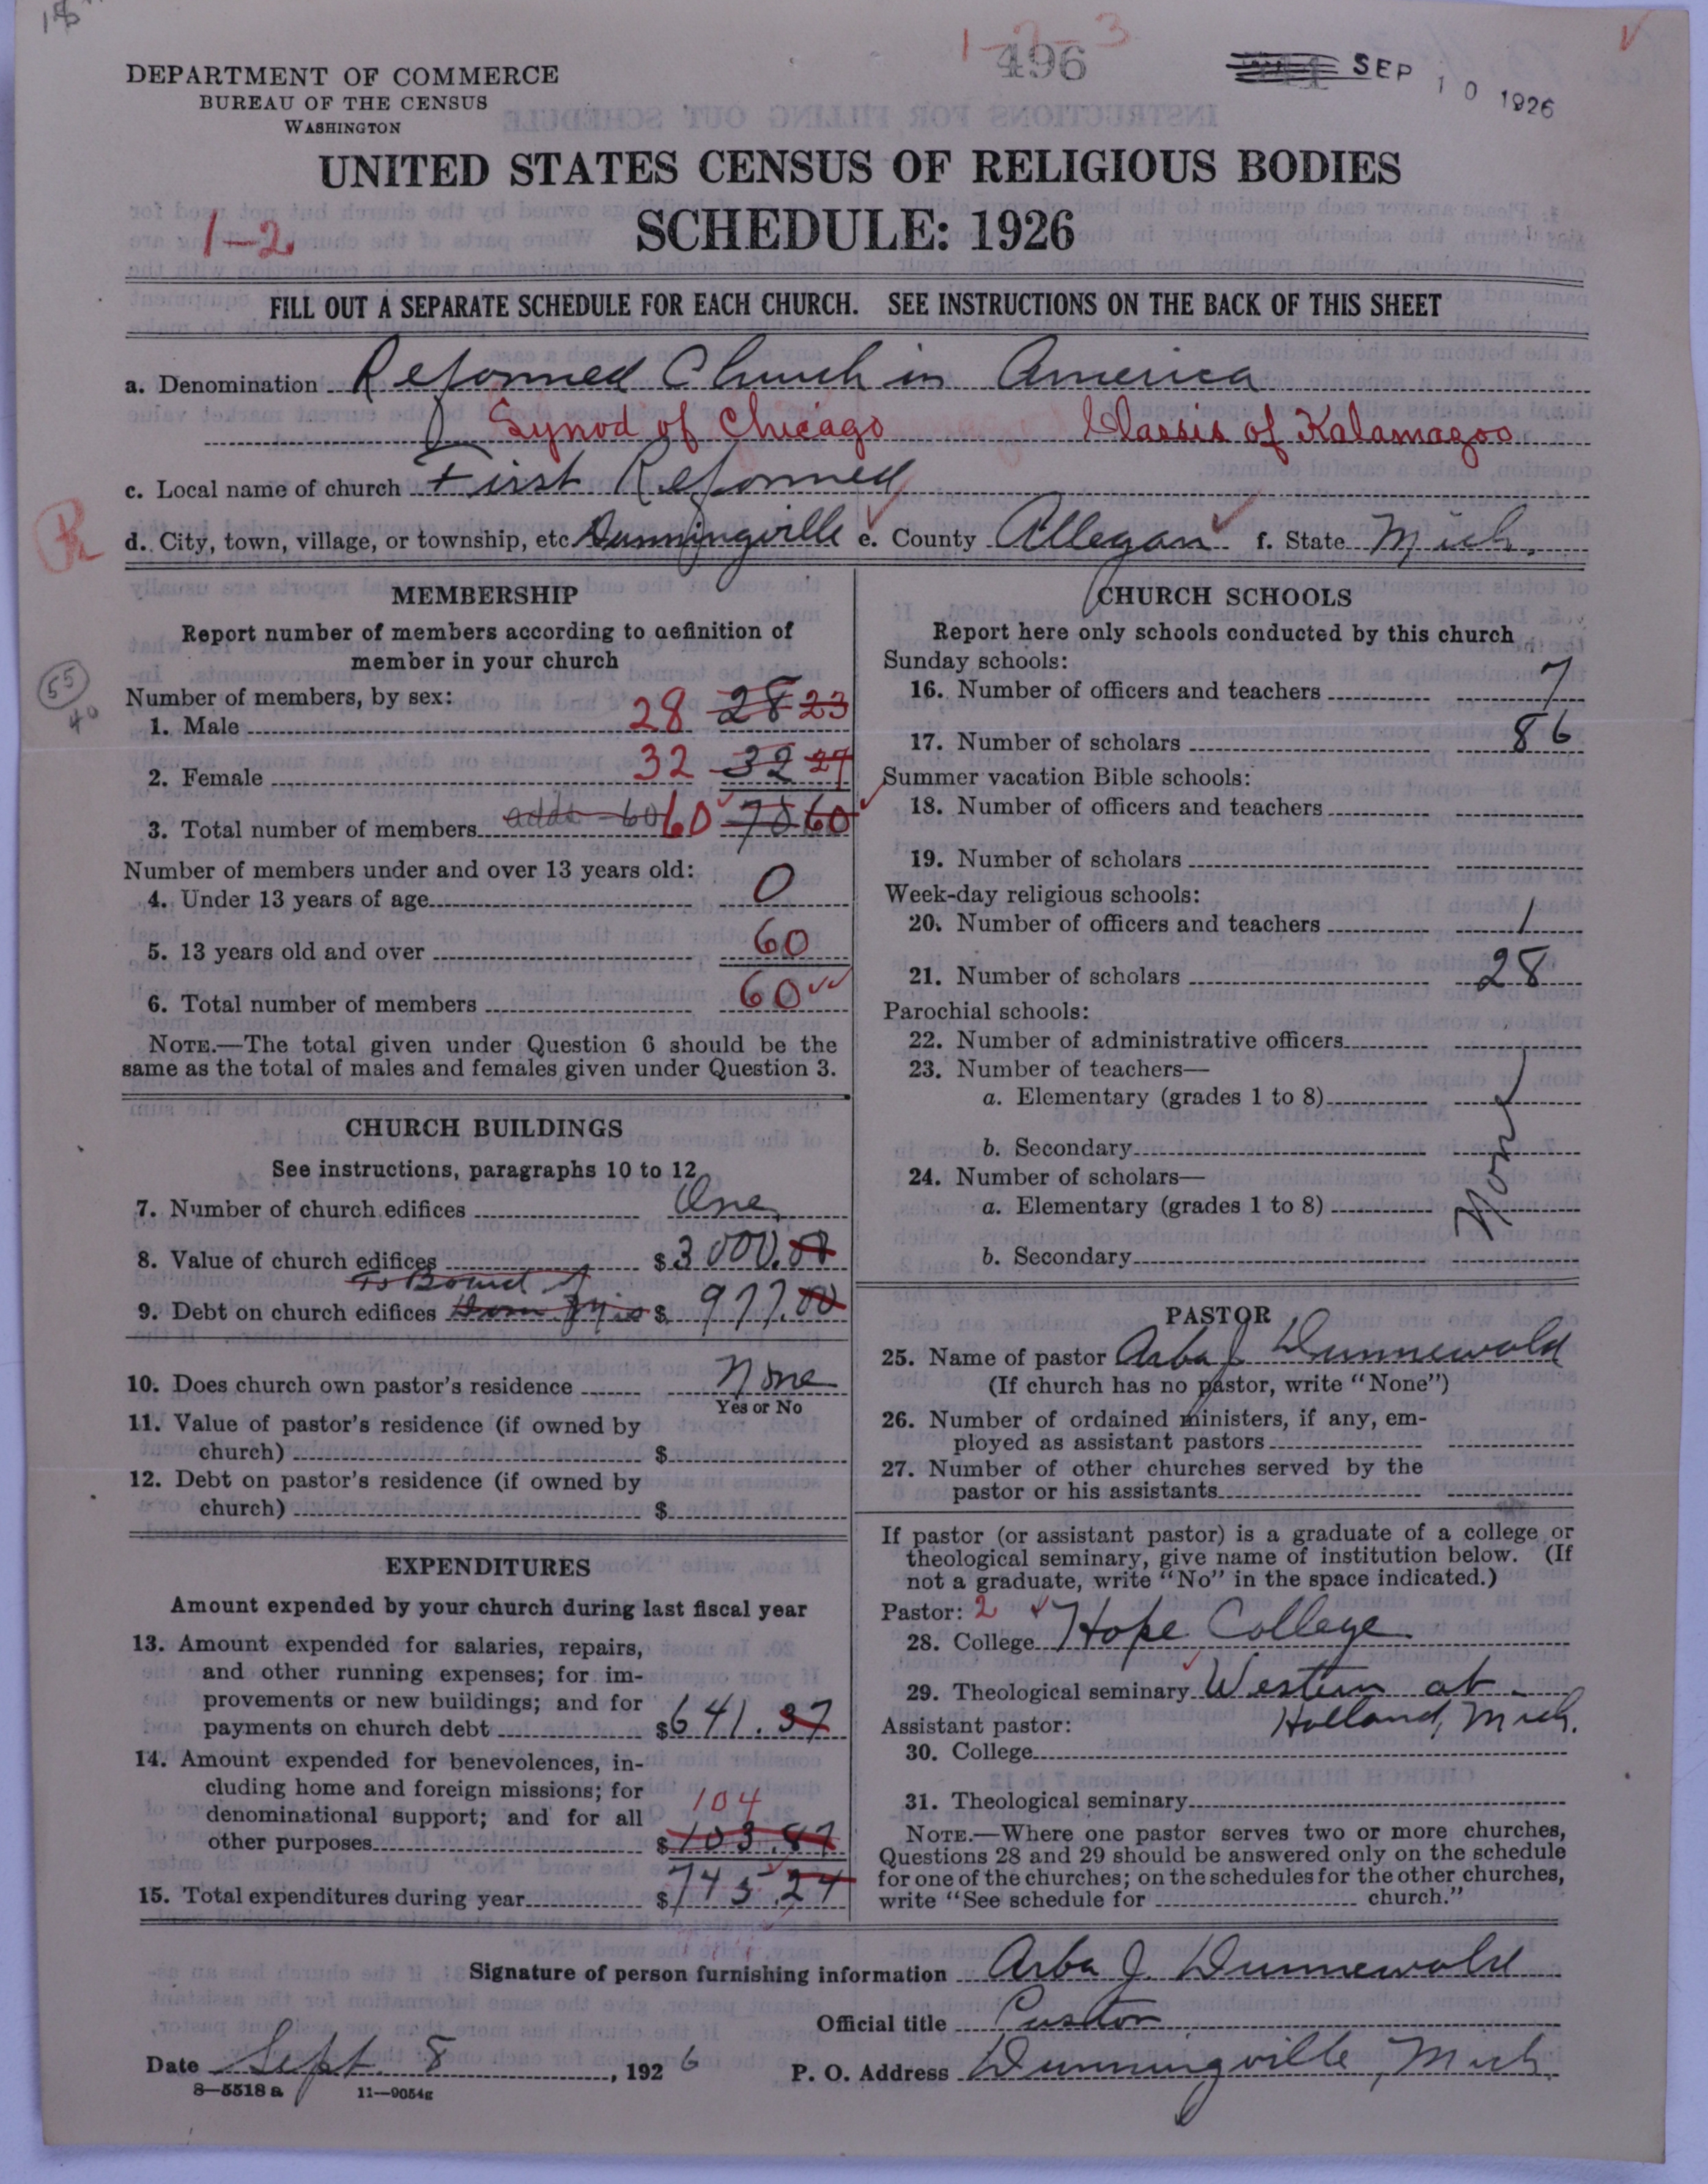 1-2-3
496
SEP 10 1926
DEPARTMENT OF COMMERCE
BUREAU OF THE CENSUS
WASHINGTON
UNITED STATES CENSUS OF RELIGIOUS BODIES
SCHEDULE: 1926
1-2
FILL OUT A SEPARATE SCHEDULE FOR EACH CHURCH. SEE INSTRUCTIONS ON THE BACK OF THIS SHEET
a. Denomination Reformed Church in America
Synod of Chicago Classis of Kalamazoo
c. Local name of church First Reformed
d. City, town, village, or township, etc. Dunningville e. County Allegan f. State Mich.
MEMBERSHIP
Report number of members according to definition of
member in your church
55
40
Number of members, by sex:
1. Male 28 28 23
2. Female 32 32 27
3. Total number of members adds 60 60 70 60
Number of members under and over 13 years old:
4. Under 13 years of age 0
5. 13 years old and over 60
6. Total number of members 60
NOTE.—The total given under Question 6 should be the
same as the total of males and females given under Question 3.
CHURCH BUILDINGS
See instructions, paragraphs 10 to 12
7. Number of church edifices One
8. Value of church edifices $3000.00
To Board of
9. Debt on church edifices Dom. Miss $ 977.00
10. Does church own pastor's residence None
Yes or No
11. Value of pastor's residence (if owned by
church) $
12. Debt on pastor's residence (if owned by
church) $
EXPENDITURES
Amount expended by your church during last fiscal year
13. Amount expended for salaries, repairs,
and other running expenses; for im-
provements or new buildings; and for
payments on church debt $641.37
14. Amount expended for benevolences, in-
cluding home and foreign missions; for
denominational support; and for all
104
other purposes $103.87
15. Total expenditures during year $745.24
CHURCH SCHOOLS
Report here only schools conducted by this church
Sunday schools:
16. Number of officers and teachers 7
17. Number of scholars 86
Summer vacation Bible schools:
18. Number of officers and teachers
19. Number of scholars
Week-day religious schools:
20. Number of officers and teachers 1
21. Number of scholars 28
Parochial schools:
22. Number of administrative officers
23. Number of teachers—
a. Elementary (grades 1 to 8)
b. Secondary
None
24. Number of scholars—
a. Elementary (grades 1 to 8)
b. Secondary
PASTOR
25. Name of pastor Arba J Dunnewold
(If church has no pastor, write "None")
26. Number of ordained ministers, if any, em-
ployed as assistant pastors
27. Number of other churches served by the
pastor or his assistants
If pastor (or assistant pastor) is a graduate of a college or
theological seminary, give name of institution below. (If
not a graduate, write "No" in the space indicated.)
Pastor: 2
28. College Hope College
29. Theological seminary Western at
Holland, Mich.
Assistant pastor:
30. College
31. Theological seminary
NOTE.—Where one pastor serves two or more churches,
Questions 28 and 29 should be answered only on the schedule
for one of the churches; on the schedules for the other churches,
write "See schedule for church."
Signature of person furnishing information Arba J. Dunnewold
Official title Pastor
Date Sept. 8, 1926 P. O. Address Dunningville, Mich.
8—5518 a 11—9054g